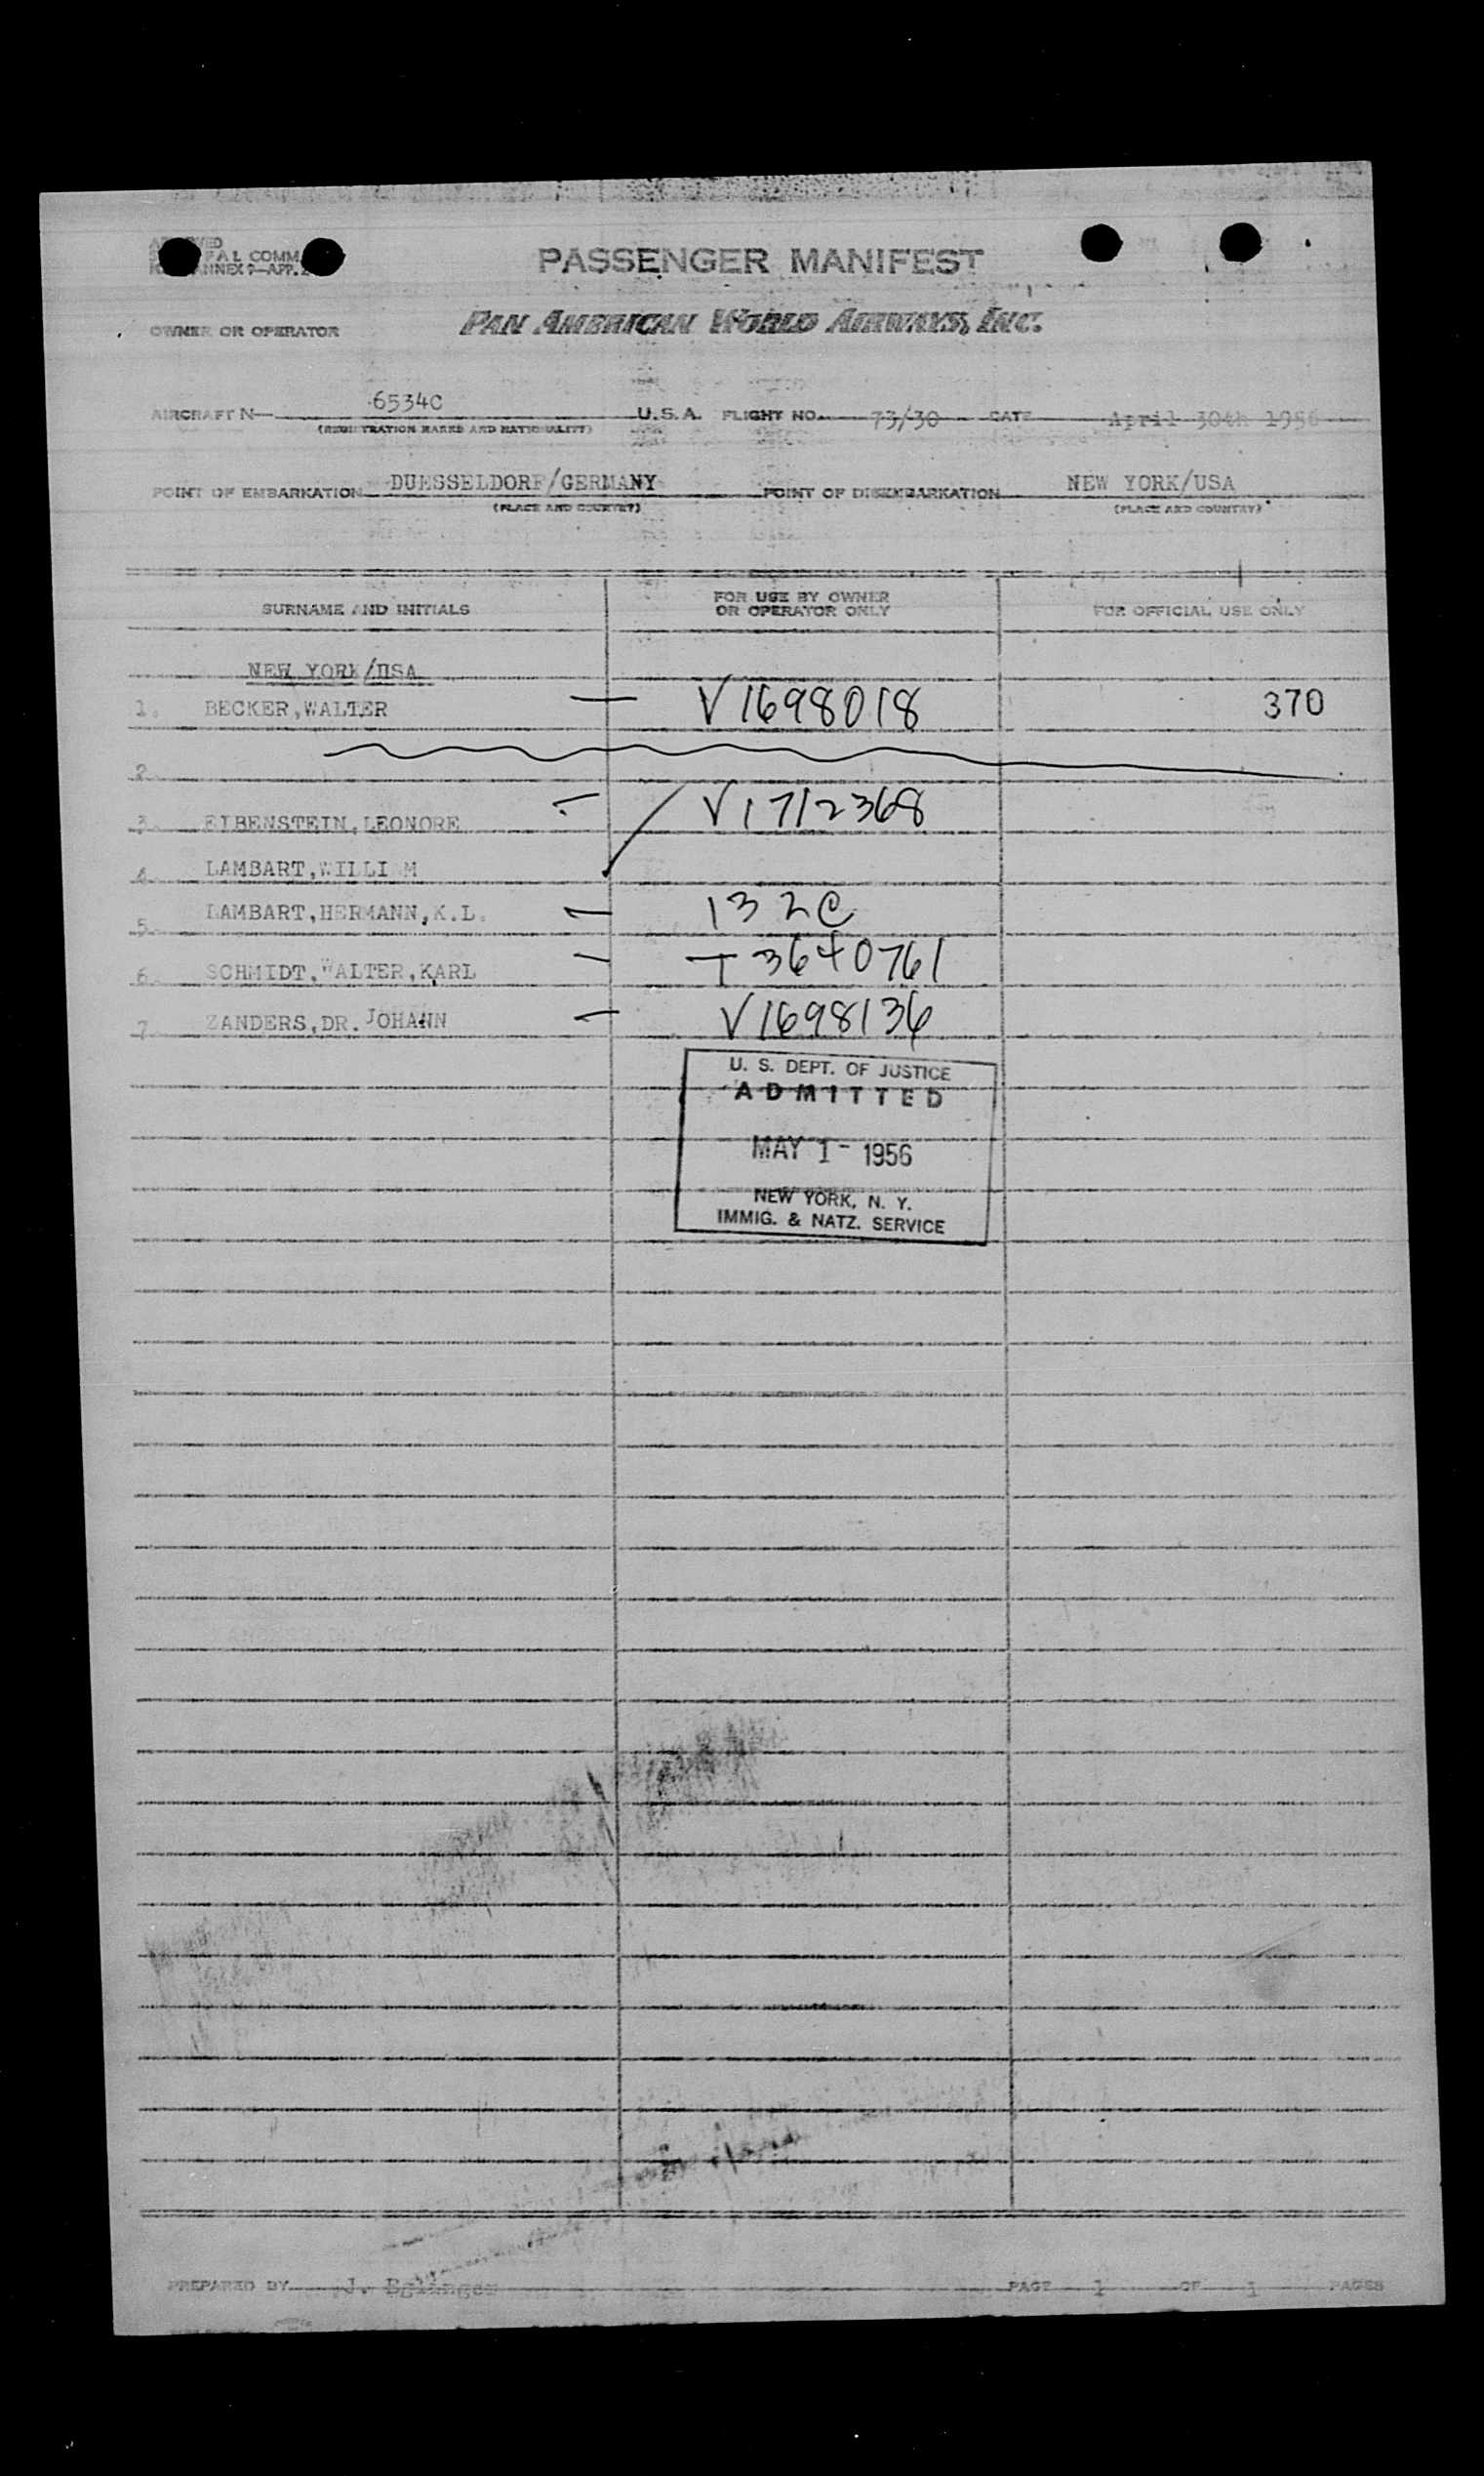 PASSENGER MANIFEST
OWNER OR OPERATOR PAN AMERICAN WORLD AIRWAYS, INC.
AIRCRAFT N— 6534C U.S.A. FLIGHT NO. 73/30 DATE April 30th 1956
(REGISTRATION MARKS AND NATIONALITY)
POINT OF EMBARKATION DUESSELDORF/GERMANY POINT OF DISEMBARKATION NEW YORK/USA
(PLACE AND COUNTRY) (PLACE AND COUNTRY)
SURNAME AND INITIALS FOR USE BY OWNER OR OPERATOR ONLY FOR OFFICIAL USE ONLY
NEW YORK/USA
1. BECKER,WALTER — V1698018 370
2.
3. EIBENSTEIN,LEONORE — V1712368
4. LAMBART,WILLI M
5. LAMBART,HERMANN,K.L. — 132C
6. SCHMIDT,WALTER,KARL — T3640761
7. ZANDERS,DR.JOHANN — V1698136
U. S. DEPT. OF JUSTICE
ADMITTED
MAY 1 - 1956
NEW YORK, N. Y.
IMMIG. & NATZ. SERVICE
PREPARED BY J. PAGE 1 OF 1 PAGES